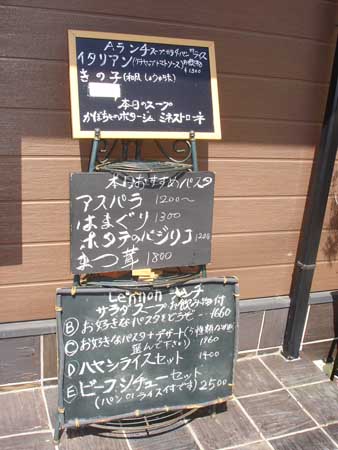 Aランチ スープ サラダ パン or ライス
イタリアン
¥1300
きの子 (和風 しょうゆ味)
本日のスープ
かぼちゃのポタージュ ミネストローネ
本日おすすめパスタ
アスパラ 1200〜
はまぐり 1300
ホタテのバジリコ 1200
まつ茸 1800
Lennon ランチ
サラダ スープ お飲み物付
Ⓑ お好きなパスタをどうぞ…1660
Ⓒ お好きなパスタ+デザート
選んで下さい) 1960
D ハヤシライスセット 1400
E ビーフシチューセット
(パン or ライス付です) 2500